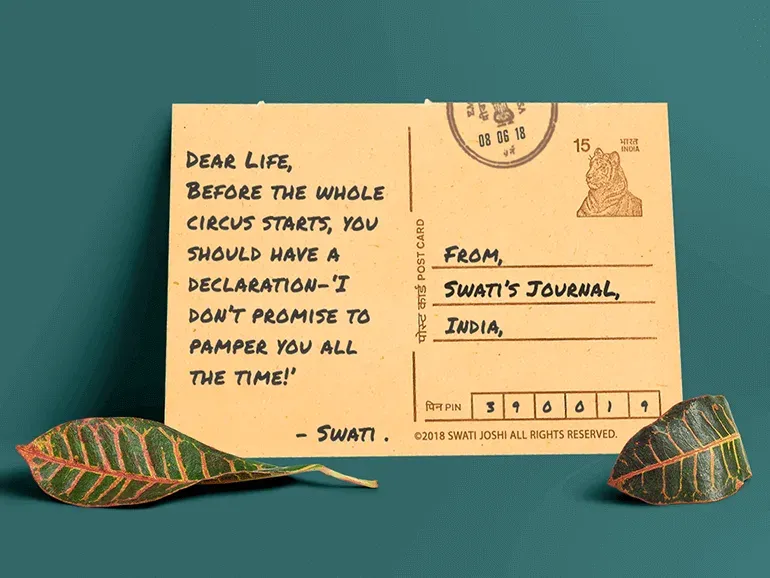 DEAR LIFE,
BEFORE THE WHOLE
CIRCUS STARTS, YOU
SHOULD HAVE A
DECLARATION-'I
DON'T PROMISE TO
PAMPER YOU ALL
THE TIME!'
- SWATI .
08 06 18
15 भारत
INDIA
पोस्ट कार्ड POST CARD
FROM,
SWATI'S JOURNAL,
INDIA,
पिन PIN 3 9 0 0 1 9
©2018 SWATI JOSHI ALL RIGHTS RESERVED.